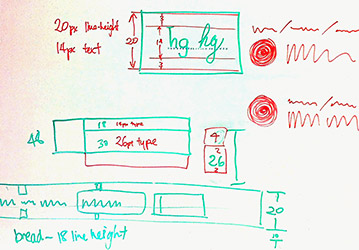 20px line-height
14px text
20
14
hg hg
46
18 14px type
30 26px type
4
2
26
2
20
bread - 18 line height